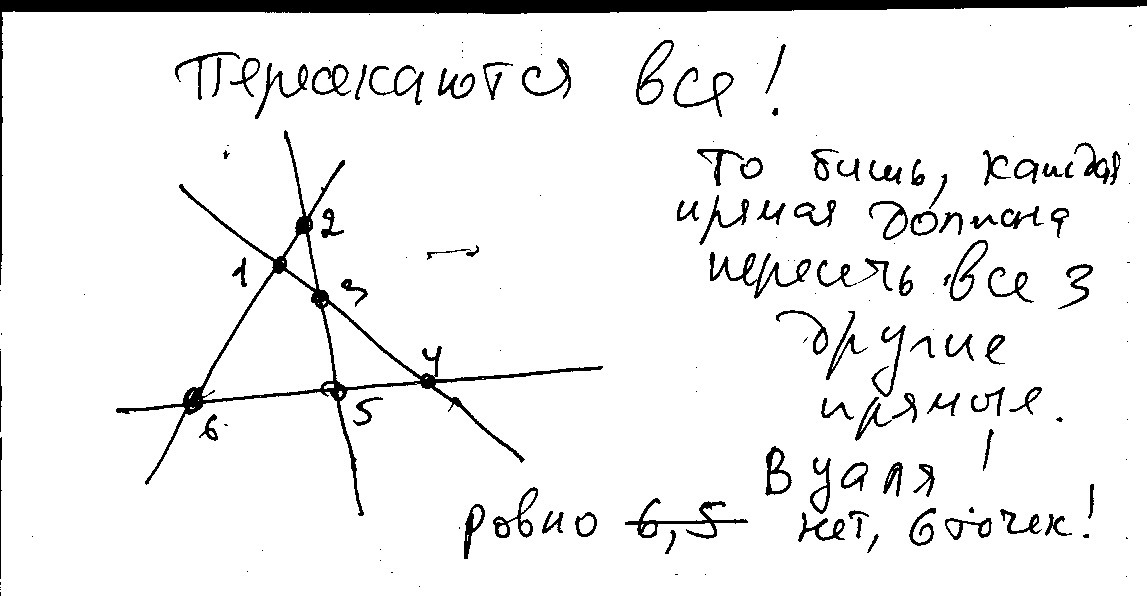 Пересекаются все!
То бишь, каждая
прямая должна
пересечь все 3
другие
прямые.
Вуаля!
2
1
3
4
5
6
ровно 6,5 нет, 6 точек!